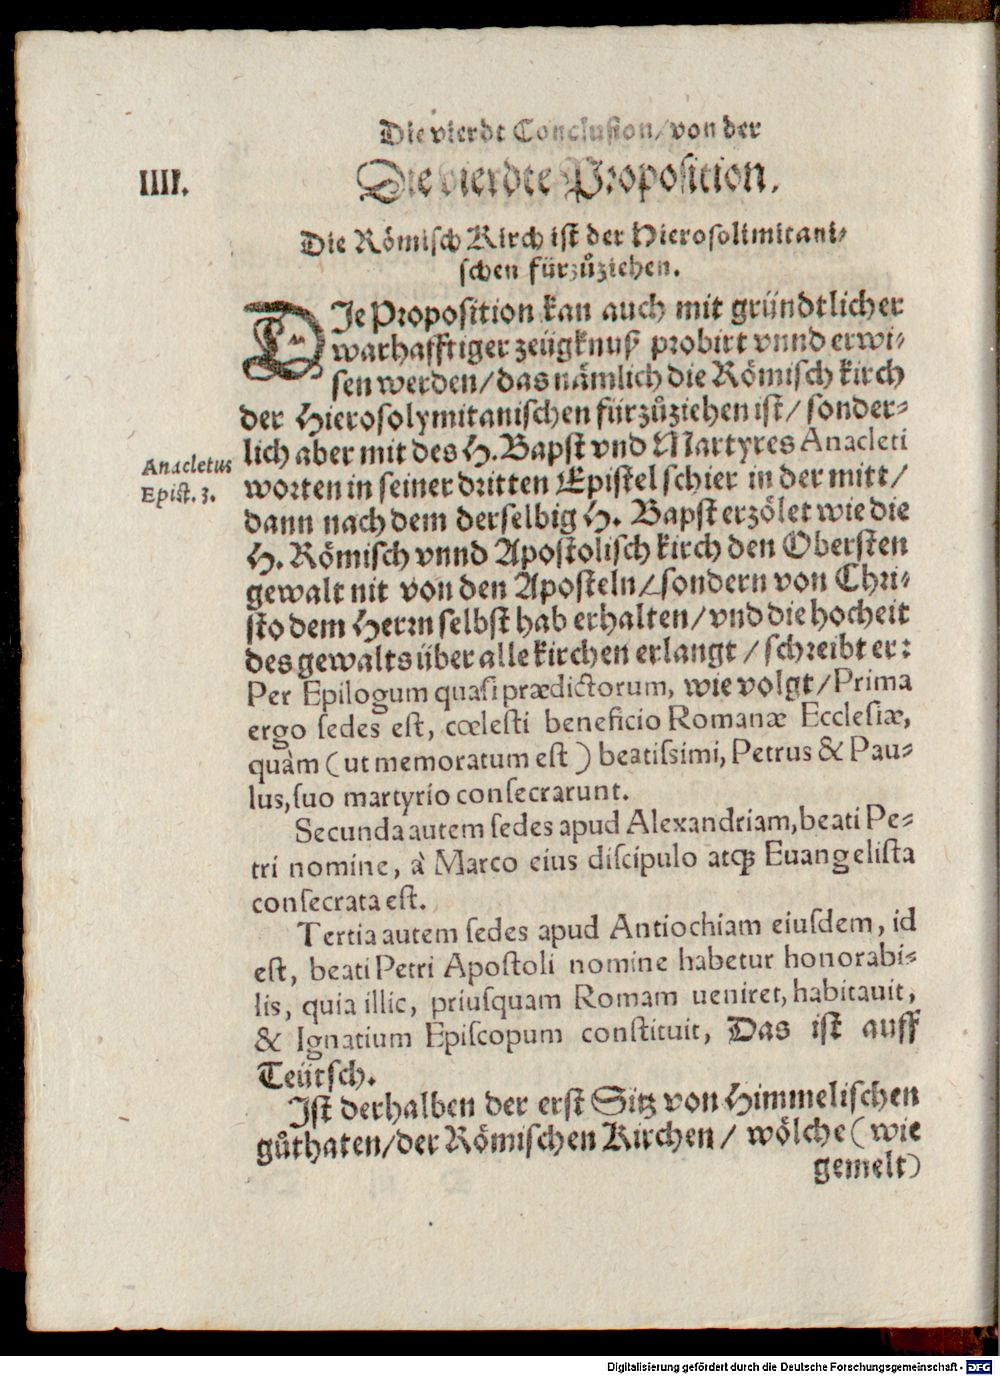 Die vierdt Conclusion/von der
IIII.
Die vierdte Proposition.
Die Römisch Kirch ist der Hierosolimitani-
schen fürzůziehen.
DIe Proposition kan auch mit gründtlicher
warhafftiger zeügknuß probirt vnnd erwi-
sen werden/das nämlich die Römisch kirch
der Hierosolymitanischen fürzůziehen ist/ sonder-
lich aber mit des H. Bapst vnd Martyres Anacleti
Anacletus
Epist. 3.
worten in seiner dritten Epistel schier in der mitt/
dann nach dem derselbig H. Bapst erzölet wie die
H. Römisch vnnd Apostolisch kirch den Obersten
gewalt nit von den Aposteln/sondern von Chri-
sto dem Herrn selbst hab erhalten/vnd die hocheit
des gewalts über alle kirchen erlangt/schreibt er:
Per Epilogum quasi prædictorum, wie volgt/Prima
ergo sedes est, cœlesti beneficio Romanæ Ecclesiæ,
quàm (ut memoratum est) beatissimi, Petrus & Pau-
lus, suo martyrio consecrarunt.
Secunda autem sedes apud Alexandriam, beati Pe-
tri nomine, à Marco eius discipulo atq; Euangelista
consecrata est.
Tertia autem sedes apud Antiochiam eiusdem, id
est, beati Petri Apostoli nomine habetur honorabi-
lis, quia illic, priusquam Romam ueniret, habitauit,
& Ignatium Episcopum constituit, Das ist auff
Teütsch.
Ist derhalben der erst Sitz von Himmelischen
gůthaten/der Römischen Kirchen/ wölche (wie
gemelt)
Digitalisierung gefördert durch die Deutsche Forschungsgemeinschaft - DFG